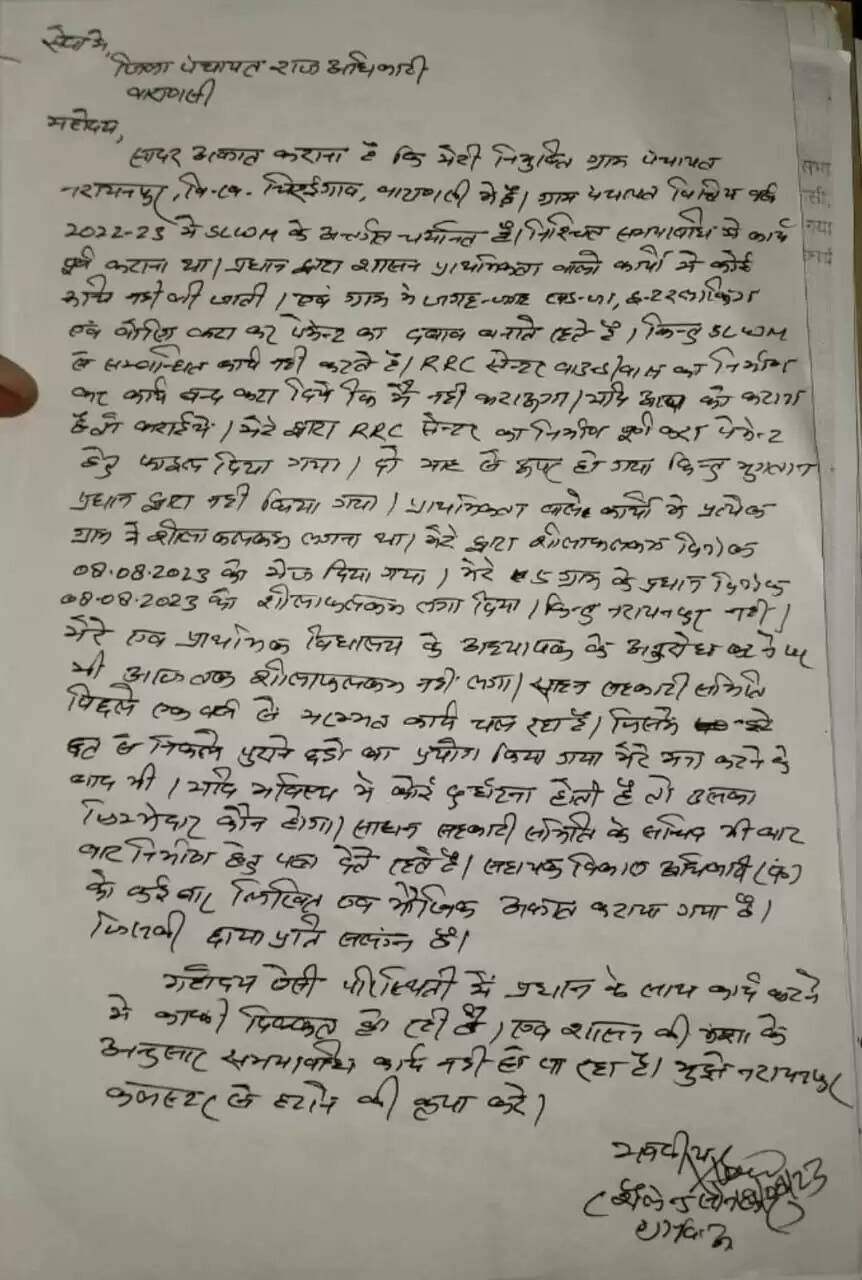 सेवा में,
जिला पंचायत राज अधिकारी
वाराणसी
महोदय,
सादर अवगत कराना है कि मेरी नियुक्ति ग्राम पंचायत
नरायनपुर, वि.ख. चिरईगांव, वाराणसी में है। ग्राम पंचायत वित्तिय वर्ष
2022-23 में SLWM के अन्तर्गत चयनित है। निश्चित समयावधि में कार्य
पूर्ण कराना था। प्रधान द्वारा शासन प्राथमिकता वाले कार्यो में कोई
रूचि नही ली जाती। एवं ग्राम में जगह-जगह इन्टरलाकिंग
एवं करा कर पेमेन्ट का दबाव बनाते रहते है। किन्तु SLWM
से सम्बन्धित कार्य नही करते है। RRC सेन्टर का निर्माण
कार्य बन्द करा दिये कि मैं नही कराऊगा। यदि आप को कराना
है तो कराईये। मेरे द्वारा RRC सेन्टर का निर्माण पूर्ण करा पेमेन्ट
हेतु फाइल दिया गया। दो माह से ऊपर हो गया किन्तु भुगतान
प्रधान द्वारा नही किया गया। प्राथमिकता वाले कार्यो में प्रत्येक
ग्राम में शीलाफलकम लगना था। मेरे द्वारा शीलाफलकम दिनांक
08.08.2023 को भेज दिया गया। मेरे 5 ग्राम के प्रधान दिनांक
08.08.2023 को शीलाफलकम लगा दिया। किन्तु नरायनपुर नही।
मेरे एवं प्राथमिक विधालय के अध्यापक के अनुरोध करने पर
भी आज तक शीलाफलकम नही लगा। साधन सहकारी समिति
पिछले एक वर्ष से मरम्मत कार्य चल रहा है। जिसमे
छत से निकले पुराने का प्रयोग किया गया मेरे मना करने के
बाद भी। यदि भविष्य में कोई दुर्घटना होती है तो उसका
जिम्मेदार कौन होगा। साधन सहकारी समिति के सचिव भी बार
बार निर्माण हेतु पत्र देते रहते है। सहायक विकास अधिकारी (पं)
को कई बार लिखित एवं मौखिक अवगत कराया गया है।
जिसकी छायाप्रति सलंग्न है।
महोदय ऐसी परिस्थिती में प्रधान के साथ कार्य करने
में काफी दिक्कत हो रही है। एवं शासन की मंशा के
अनुसार समयावधि कार्य नही हो पा रहा है। मुझे नरायनपुर
कलस्टर से हटाने की कृपा करें।
भवदीय